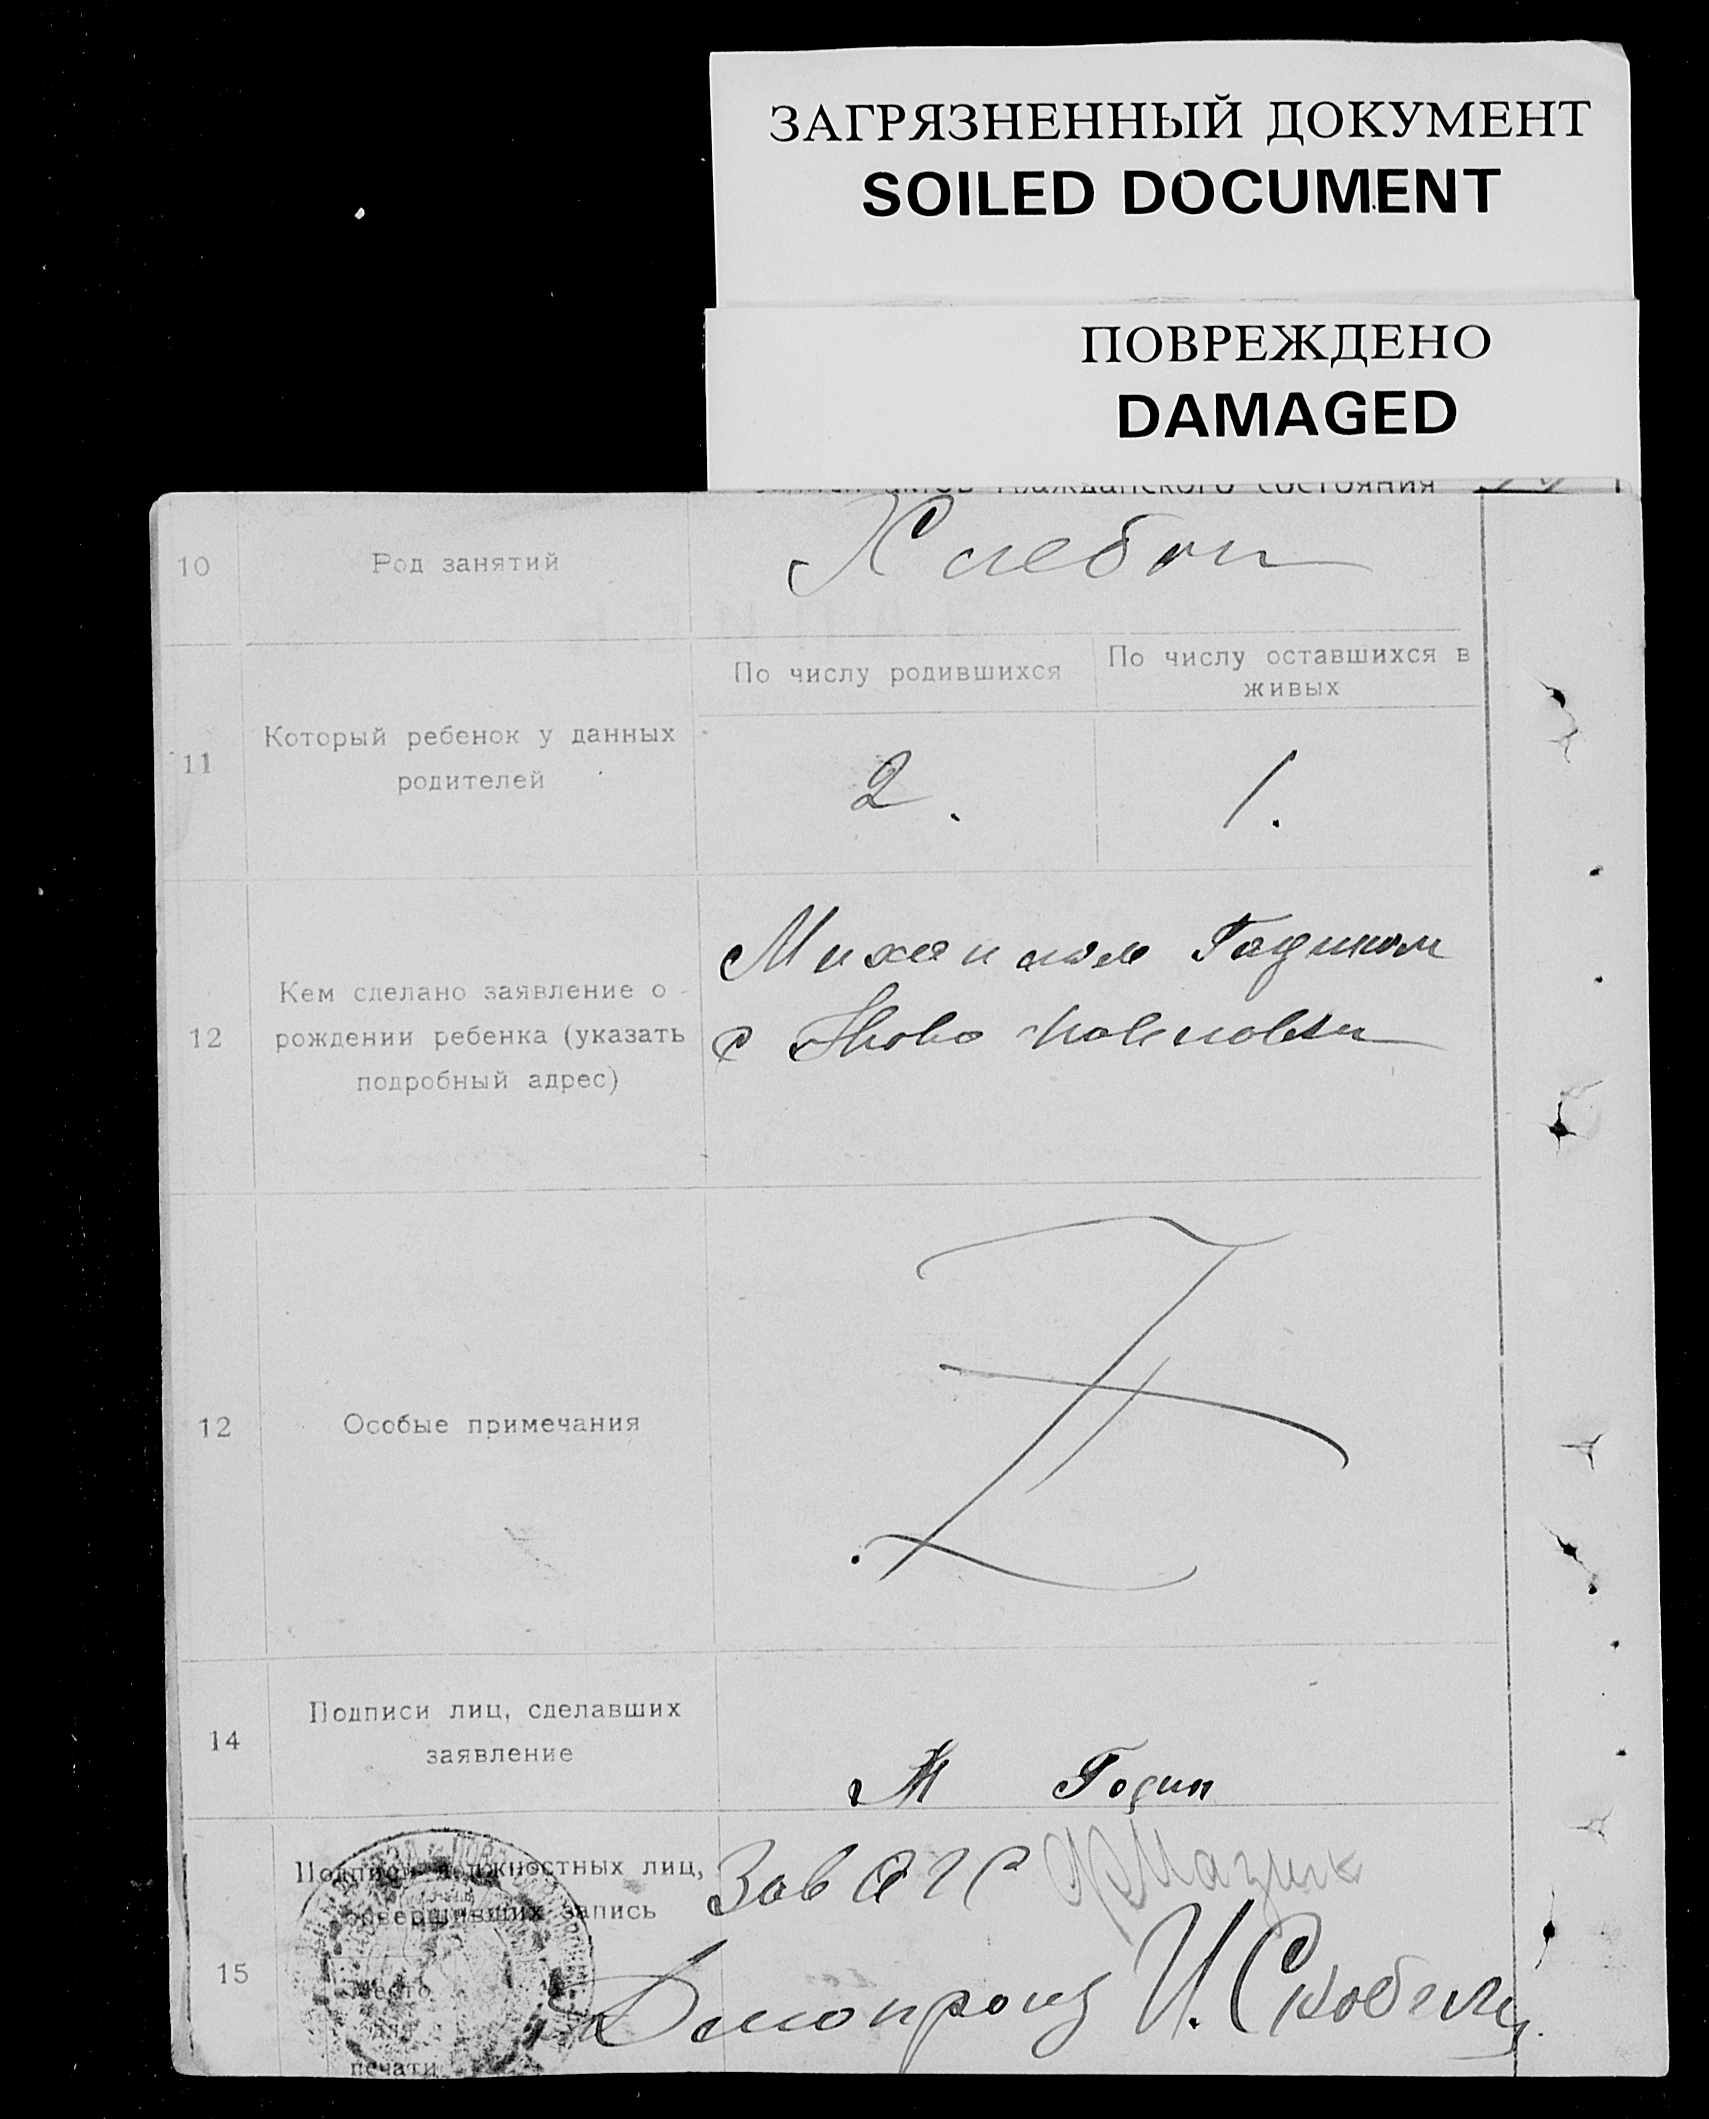 ЗАГРЯЗНЕННЫЙ ДОКУМЕНТ
SOILED DOCUMENT
ПОВРЕЖДЕНО
DAMAGED
актов гражданского состояния
10 Род занятий Хлебоп
По числу родившихся По числу оставшихся в живых
11 Который ребенок у данных
родителей
2. 1.
Михаилом Годином
Кем сделано заявление о
12 рождении ребенка (указать с Ново
подробный адрес)
12 Особые примечания
14 Подписи лиц, сделавших
заявление
М Годин
Подписи должностных лиц, Зав
совершивших запись
15 Делопроизв И. Скобель
Место
печати